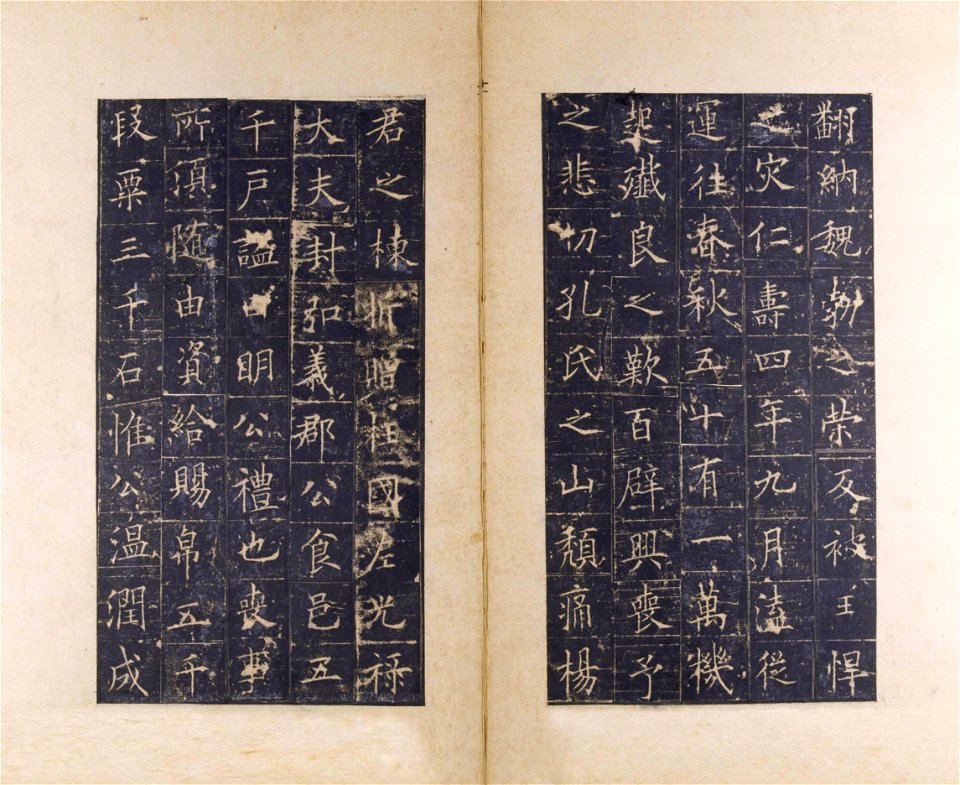 翻納魏勃之榮反被王悍
之灾仁壽四年九月溘從
運往春秋五十有一萬機
起殲良之歎百辟興喪予
之悲切孔氏之山頹痛楊
君之棟折贈柱國左光祿
大夫封弘義郡公食邑五
千戶謚曰明公禮也喪事
所須随由資給賜帛五千
段粟三千石惟公温潤成